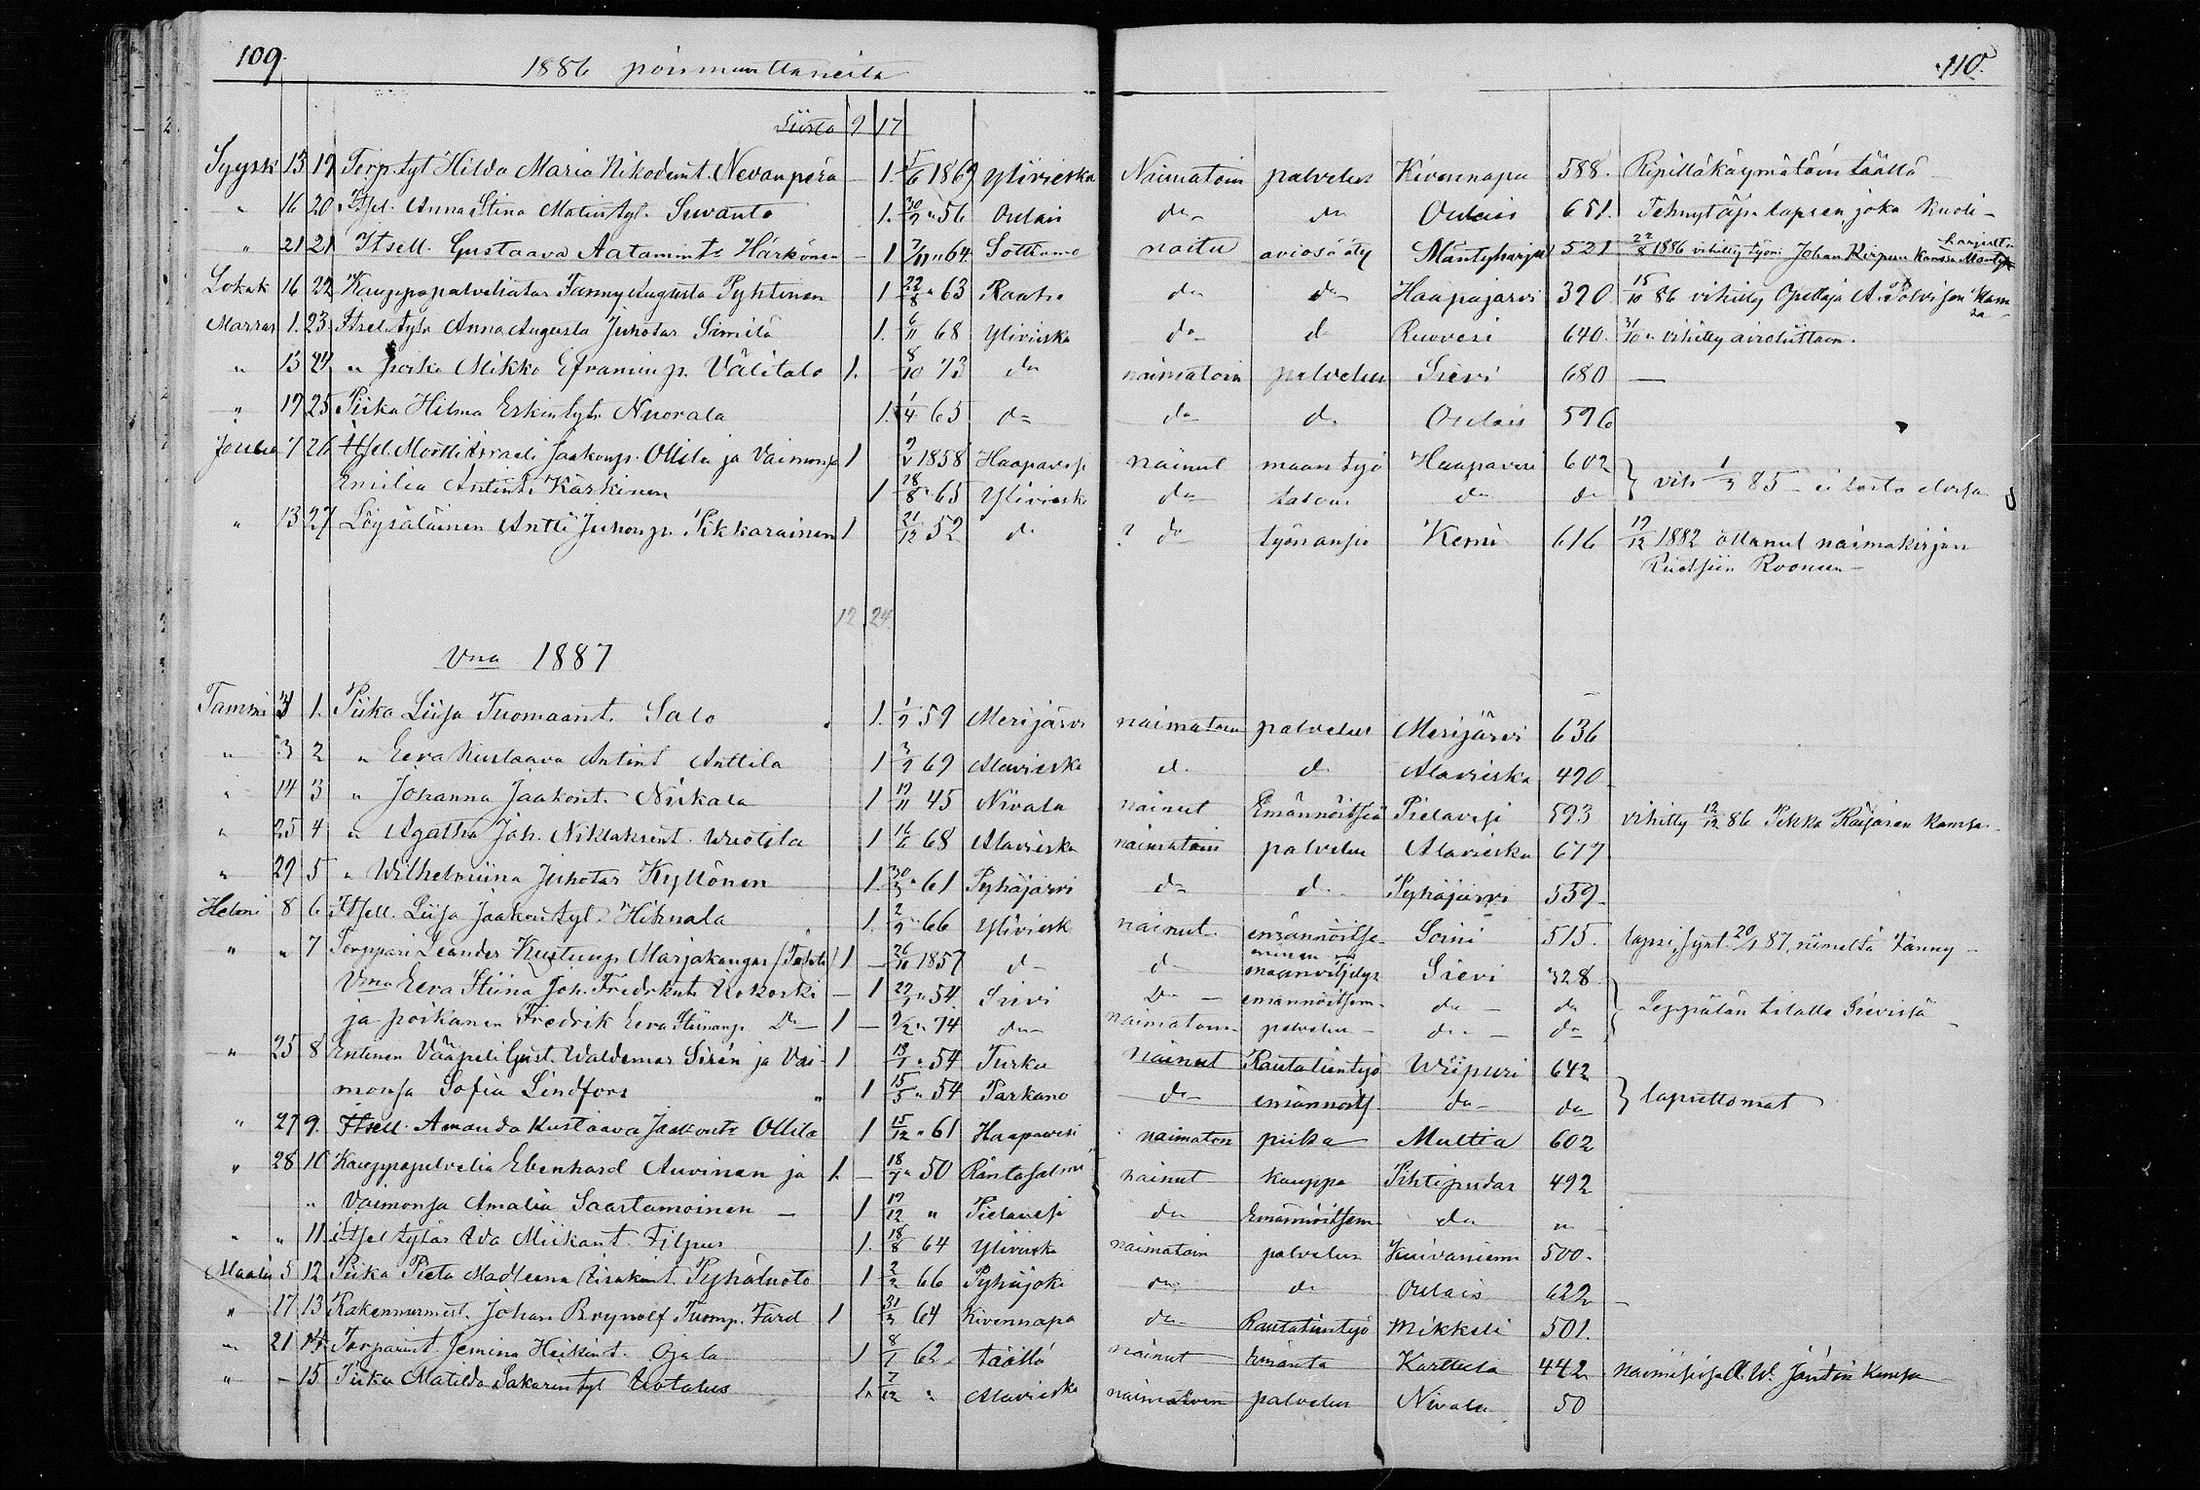 109.
1886 poismuuttaneita
110.
Siirto 9 17
Syysk 13 19 Torp. tyt Hilda Maria Nikodemt. Nevanperä — 1. 5/6 1869 Ylivieska Naimatoin palvelus Kivennapa 588. Ripilläkäymätöin täällä
" 16 20 Itsel. Anna Stina Matintyt. Suvanto 1. 30/9 " 56 Oulais do do Oulais 651. Tehnyt äp. lapsen, joka kuoli –
" 21 21 Itsell. Gustaava Aatamint. Härkönen — 1 7/11 " 64 Sotkamo naitu aviosääty Mäntyharju 521 22/8 1886 vihitty työm. Johan Kirpun kanssa Mänty
harjulta
Lokak 16 22 Kauppapalveliatar Fanny Augusta Pyhtinen 1 22/8 " 63 Raahe do do Haapajärvi 390 15/10 86 vihitty Opettaja A. Salvisen kans
sa
Marras 1. 23 Itsel. tytär Anna Augusta Juhotar Similä 1. 6/11 68 Ylivieska do d Ruovesi 640. 31/10 " vihitty avioliittoon.
" 13 24 " poika Mikko Eframinp. Välitalo 1. 8/10 73 do naimatoin palvelus Sievi 680 —
" 19 25 Piika Hilma Erkintytr Nuorala 1. 1/4 65 do do do Oulais 596
Joulu 7 26 Itsel. Martti Israeli Jaakonp. Ollila ja Vaimonsa 1 9/5 1858 Haapavesi nainut maantyö Haapavesi 602
Emilia Antint. Kärkinen 1 18/8 " 65 Ylivieska do talous do do } vih 1/3 85 – ei lasta elossa
" 13 27 Löysäläinen Antti Juhonp. Pikkarainen 1 21/12 52 do ? do työnansio Kemi 616 19/12 1882 ottanut naimakirjan
Ruotsiin
12 24
Vna 1887
Tammi 3 1. Piika Liisa Tuomaant. Salo 1. 1/9 59 Merijärvi naimatoin palvelus Merijärvi 636
" 3 2 " Eeva Kustaava Antint Anttila 1 3/9 69 Alavieska d. d. Alavieska 490
" 14 3 " Johanna Jaakont. Niskala 1 19/11 45 Nivala nainut Emännöitsiä Pielavesi 593 vihitty 12/12 86 Pekka Räisäsen kanssa
" 25 4 " Agatha Joh. Niklaksent. Wuotila 1 16/6 68 Alavieska naimatoin palvelus Alavieska 677
" 29 5 " Wilhelmiina Juhotar Kyllönen 1. 30/3 " 61 Pyhäjärvi do d. Pyhäjärvi 559
Helmi 8 6 Itsell. Liisa Jaakontyt. Hihnala 1. 2/9 " 66 Yliviesk nainut emännöitse- Soini 515. lapsi, synt. 20/1 87, nimeltä Fanny –
minen
" " 7 Torppari Leander Kustaanp Marjakangas 1 — 26/10 1857 d do maanviljelys Sievi 328
Vmo Eeva Stiina Joh. Fredrkint. — 1 22/1 " 54 Sievi Do — emännöitsem. do do } Leppälän tilalle Sievissä
ja poikanen Fredrik Eeva Stiinanp. Do 1 — 9/2 " 74 do naimatoin palvelus do — do
" 25 8 Entinen Vääpeli Gust. Waldemar Sirén ja Vai- 1 13/1 " 54 Turku nainut Rautatientyö Wiipuri 642
monsa Sofia Lindfors " 1 15/5 " 54 Parkano do emännöits. do do } lapsettomat
" 27 9. Itsell. Amanda Kustaava Jaakont. Ollila 1 15/12 " 61 Haapavesi naimaton piika Multia 602
" 28 10 Kauppapalvelia Ebenhard Auvinen ja 1. — 18/7 " 50 Rantasalmi nainut kauppa Pihtipudas 492
" Vaimonsa Amalia Saastamoinen — 1 19/12 " Pielavesi do Emännöitsem do "
" " 11. Itsel tytär Ida Miikant. Filpus 1. 18/8 64 Ylivieska naimatoin palvelus Kuivaniemi 500.
Maalis 5 12 Piika Pieta Madleena Iisakint. Pyhäluoto 1 2/2 66 Pyhäjoki do do Oulais 622
" 17 13 Rakennusmest. Johan Brynolf Tuomp. Färd 1 31/3 64 Kivennapa do Rautatientyö Mikkeli 501.
" 21 14 Torpanmt. Jemina Heikint. Ojala 1 8/1 62 täällä nainut Emäntä Karttula 442 naimisissa A. W. Jäntin kanssa
" — 15 Piika Matilda Sakarintyt Uotalus 1. 7/12 " Alavieska naimatoin palvelus Nivala 50